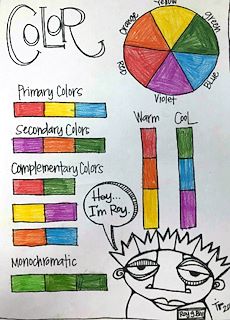 COLOR
Yellow
Orange
green
Red
Blue
Violet
Primary Colors
Secondary Colors
Complementary Colors
Monochromatic
Warm
Cool
Hey...
I'm Roy.
Roy G Biv